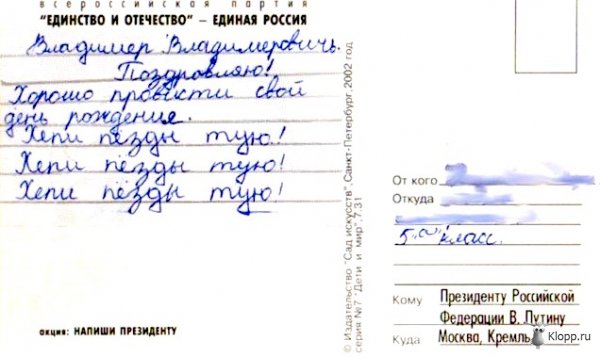 всероссийская партия
"ЕДИНСТВО И ОТЕЧЕСТВО" – ЕДИНАЯ РОССИЯ
Владимер Владимеровичь.
Поздровляю!
Хорошо провисти свой
день рождения.
Хепи пёзды тую!
Хепи пёзды тую!
Хепи пёзды тую!
акция: НАПИШИ ПРЕЗИДЕНТУ
© Издательство "Сад искусств" Санкт-Петербург, 2002 год
серия №7 "Дети и мир", 7.31
От кого
Откуда
5 "а" класс.
Кому Президенту Российской
Федерации В. Путину
Куда Москва, Кремль
Klopp.ru